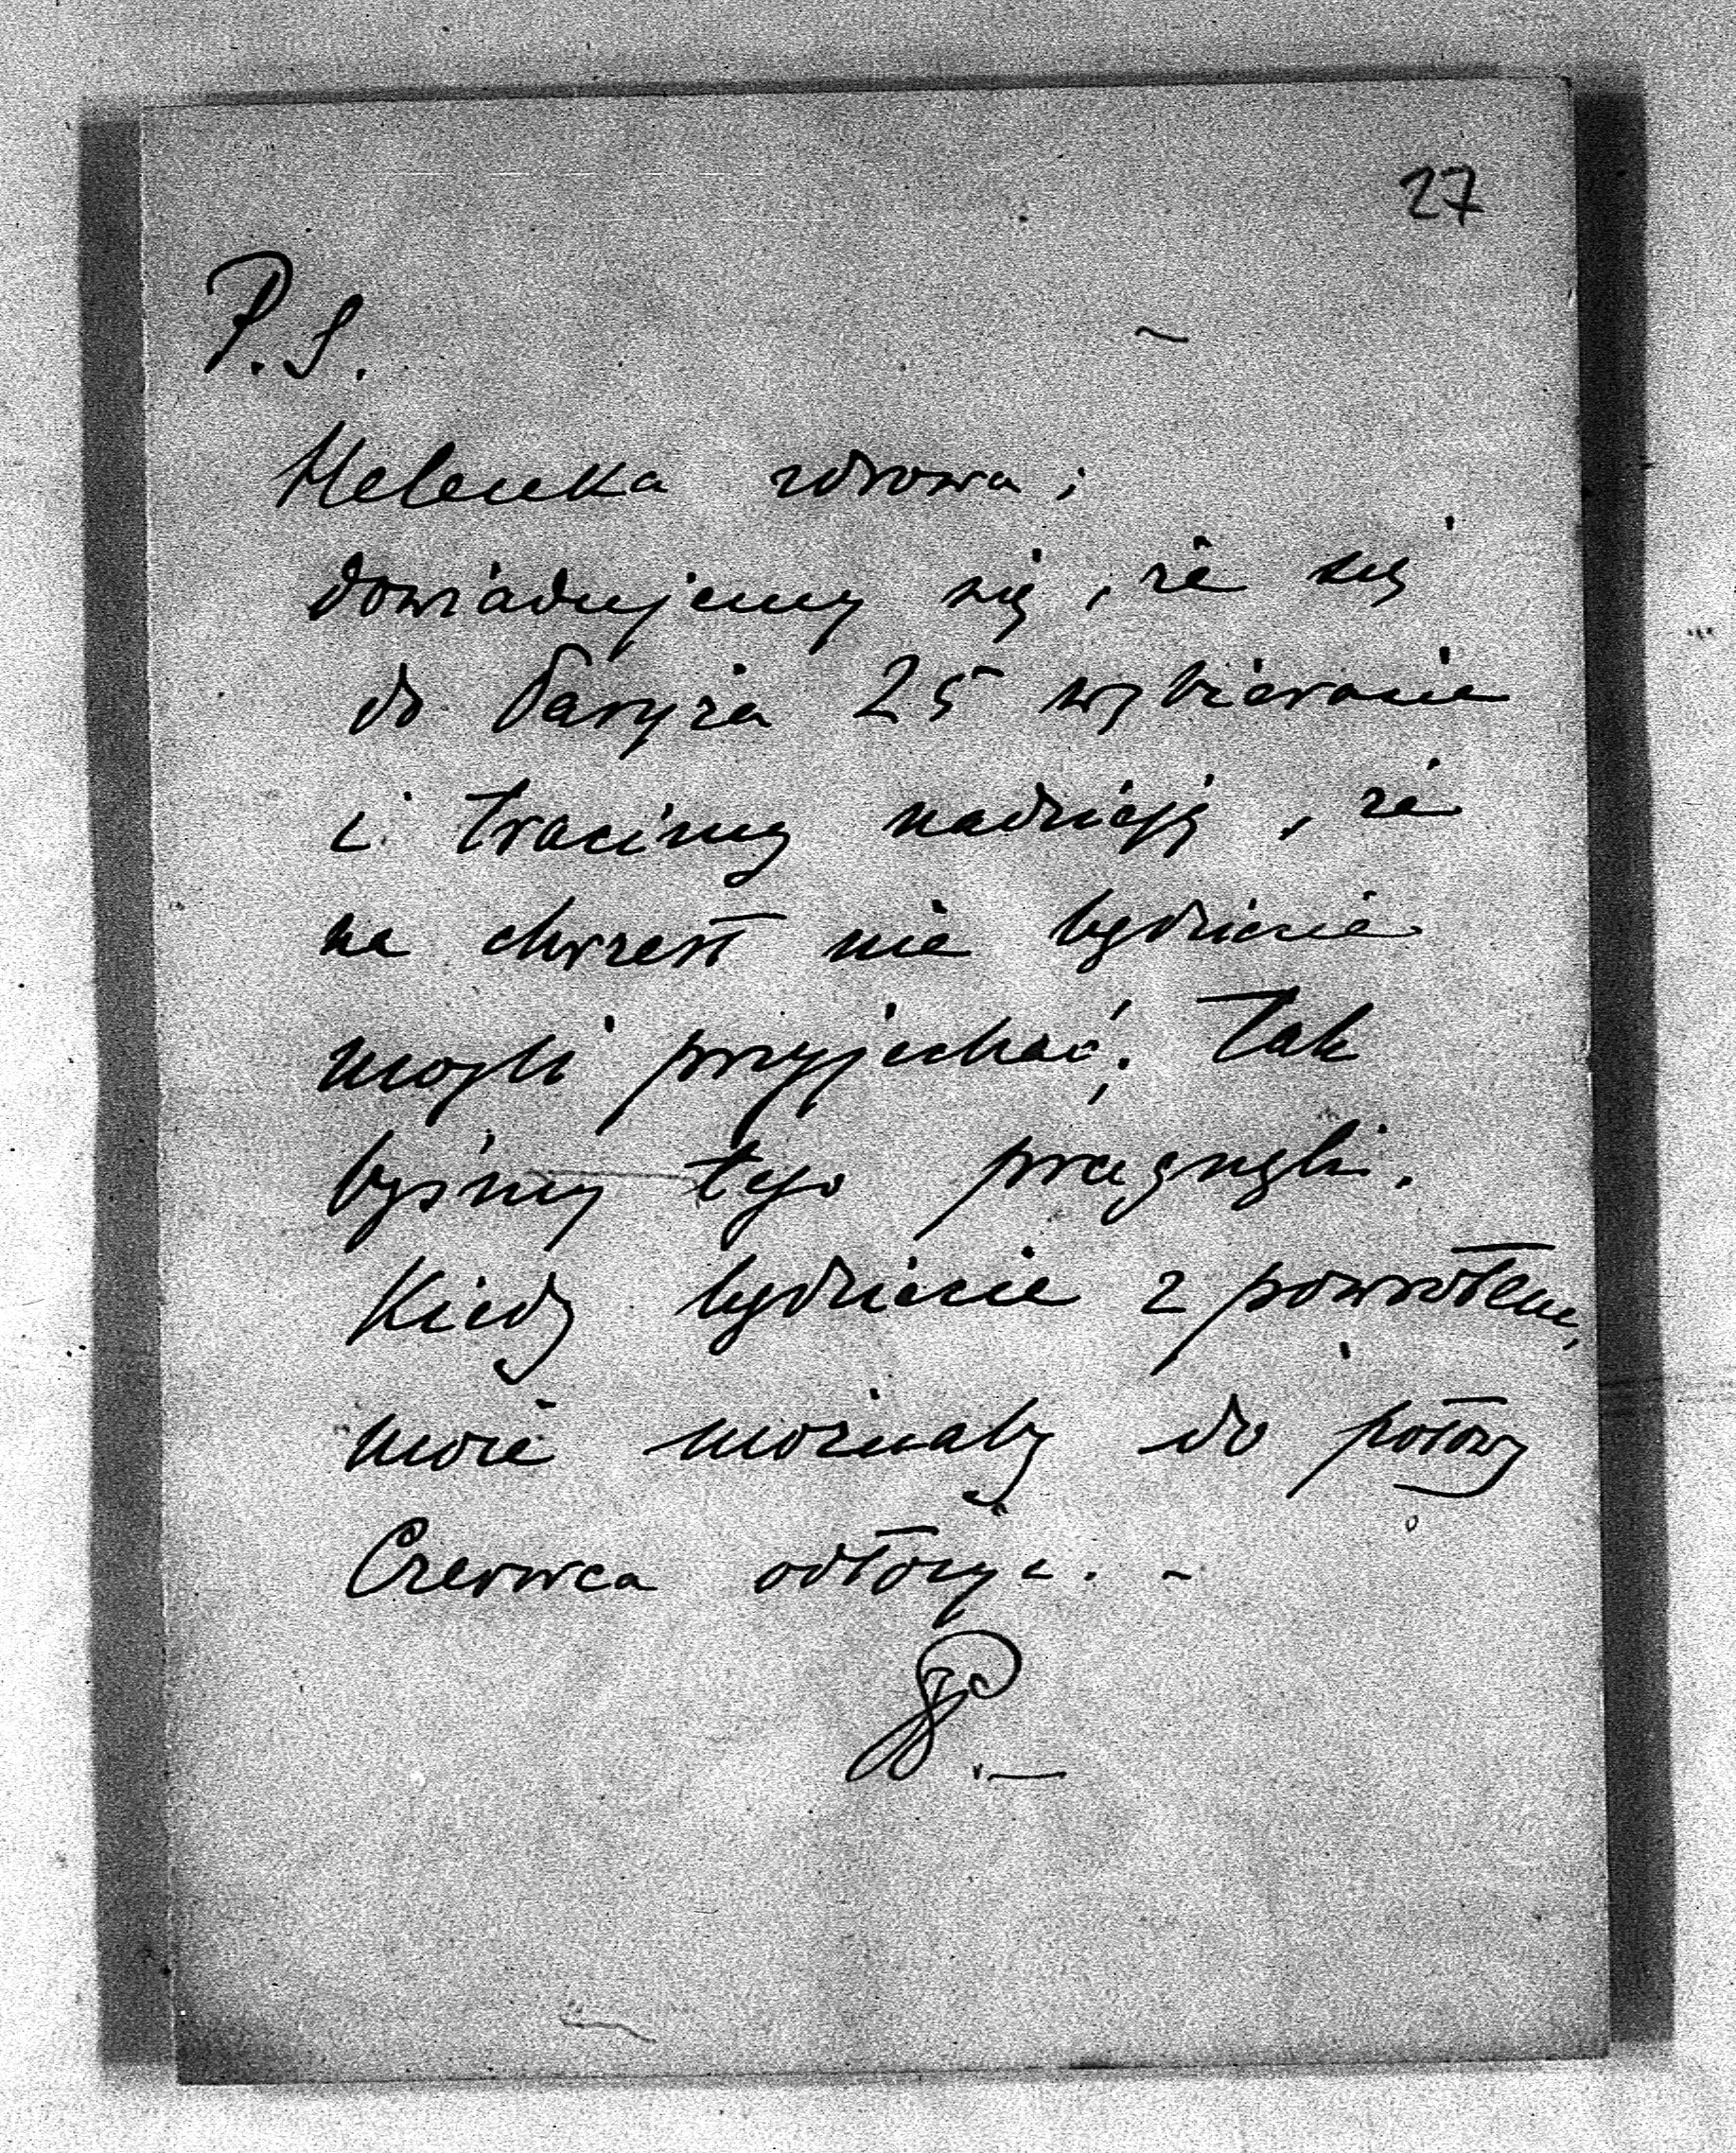 27
P.S.
Helenka zdrowa;
dowiadujemy się, że się
do Paryża 25 wybieracie
i tracimy nadzieję, że
na chrzest nie będziecie
mogli przyjechać; Tak
byśmy tego pragnęli.
Kiedy będziecie z powrotem,
może możnaby do połowy
Czerwca odłożyć. -